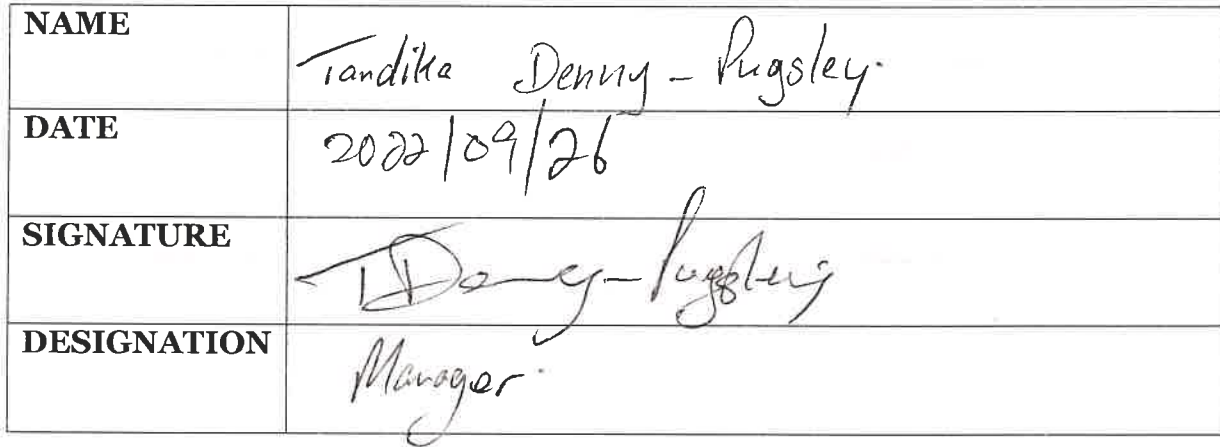 NAME Tandika Denny - Pugsley.
DATE 2022/09/26
SIGNATURE TDenny-Pugsley
DESIGNATION Manager.